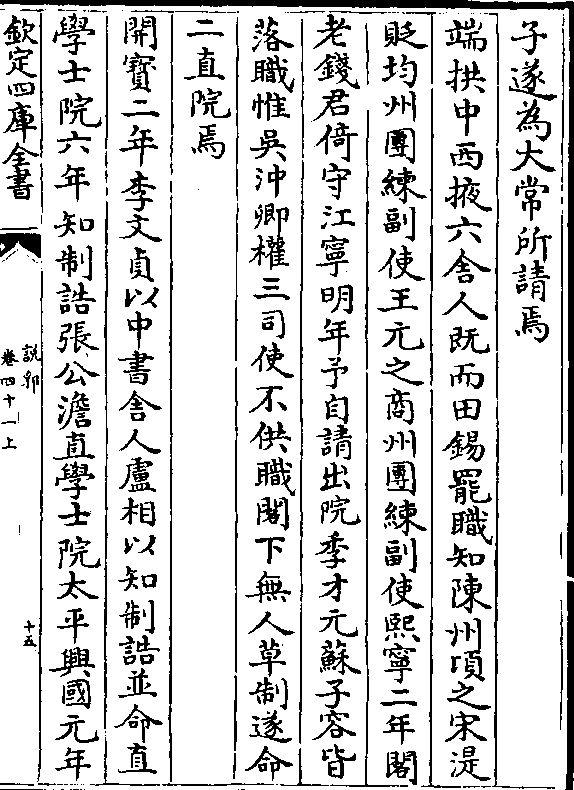 子遂為大常所請焉
端拱中西掖六舍人既而田錫罷職知陳州頃之宋湜
貶均州團練副使王元之商州團練副使熙寧二年閣
老錢君倚守江寧明年予自請出院李才元蘇子容皆
落職惟吳沖卿權三司使不供職閣下無人草制遂命
二直院焉
開寶二年李文貞以中書舍人盧相以知制誥並命直
學士院六年知制誥張公澹直學士院太平興國元年
欽定四庫全書
說郛
卷四十一上
十五